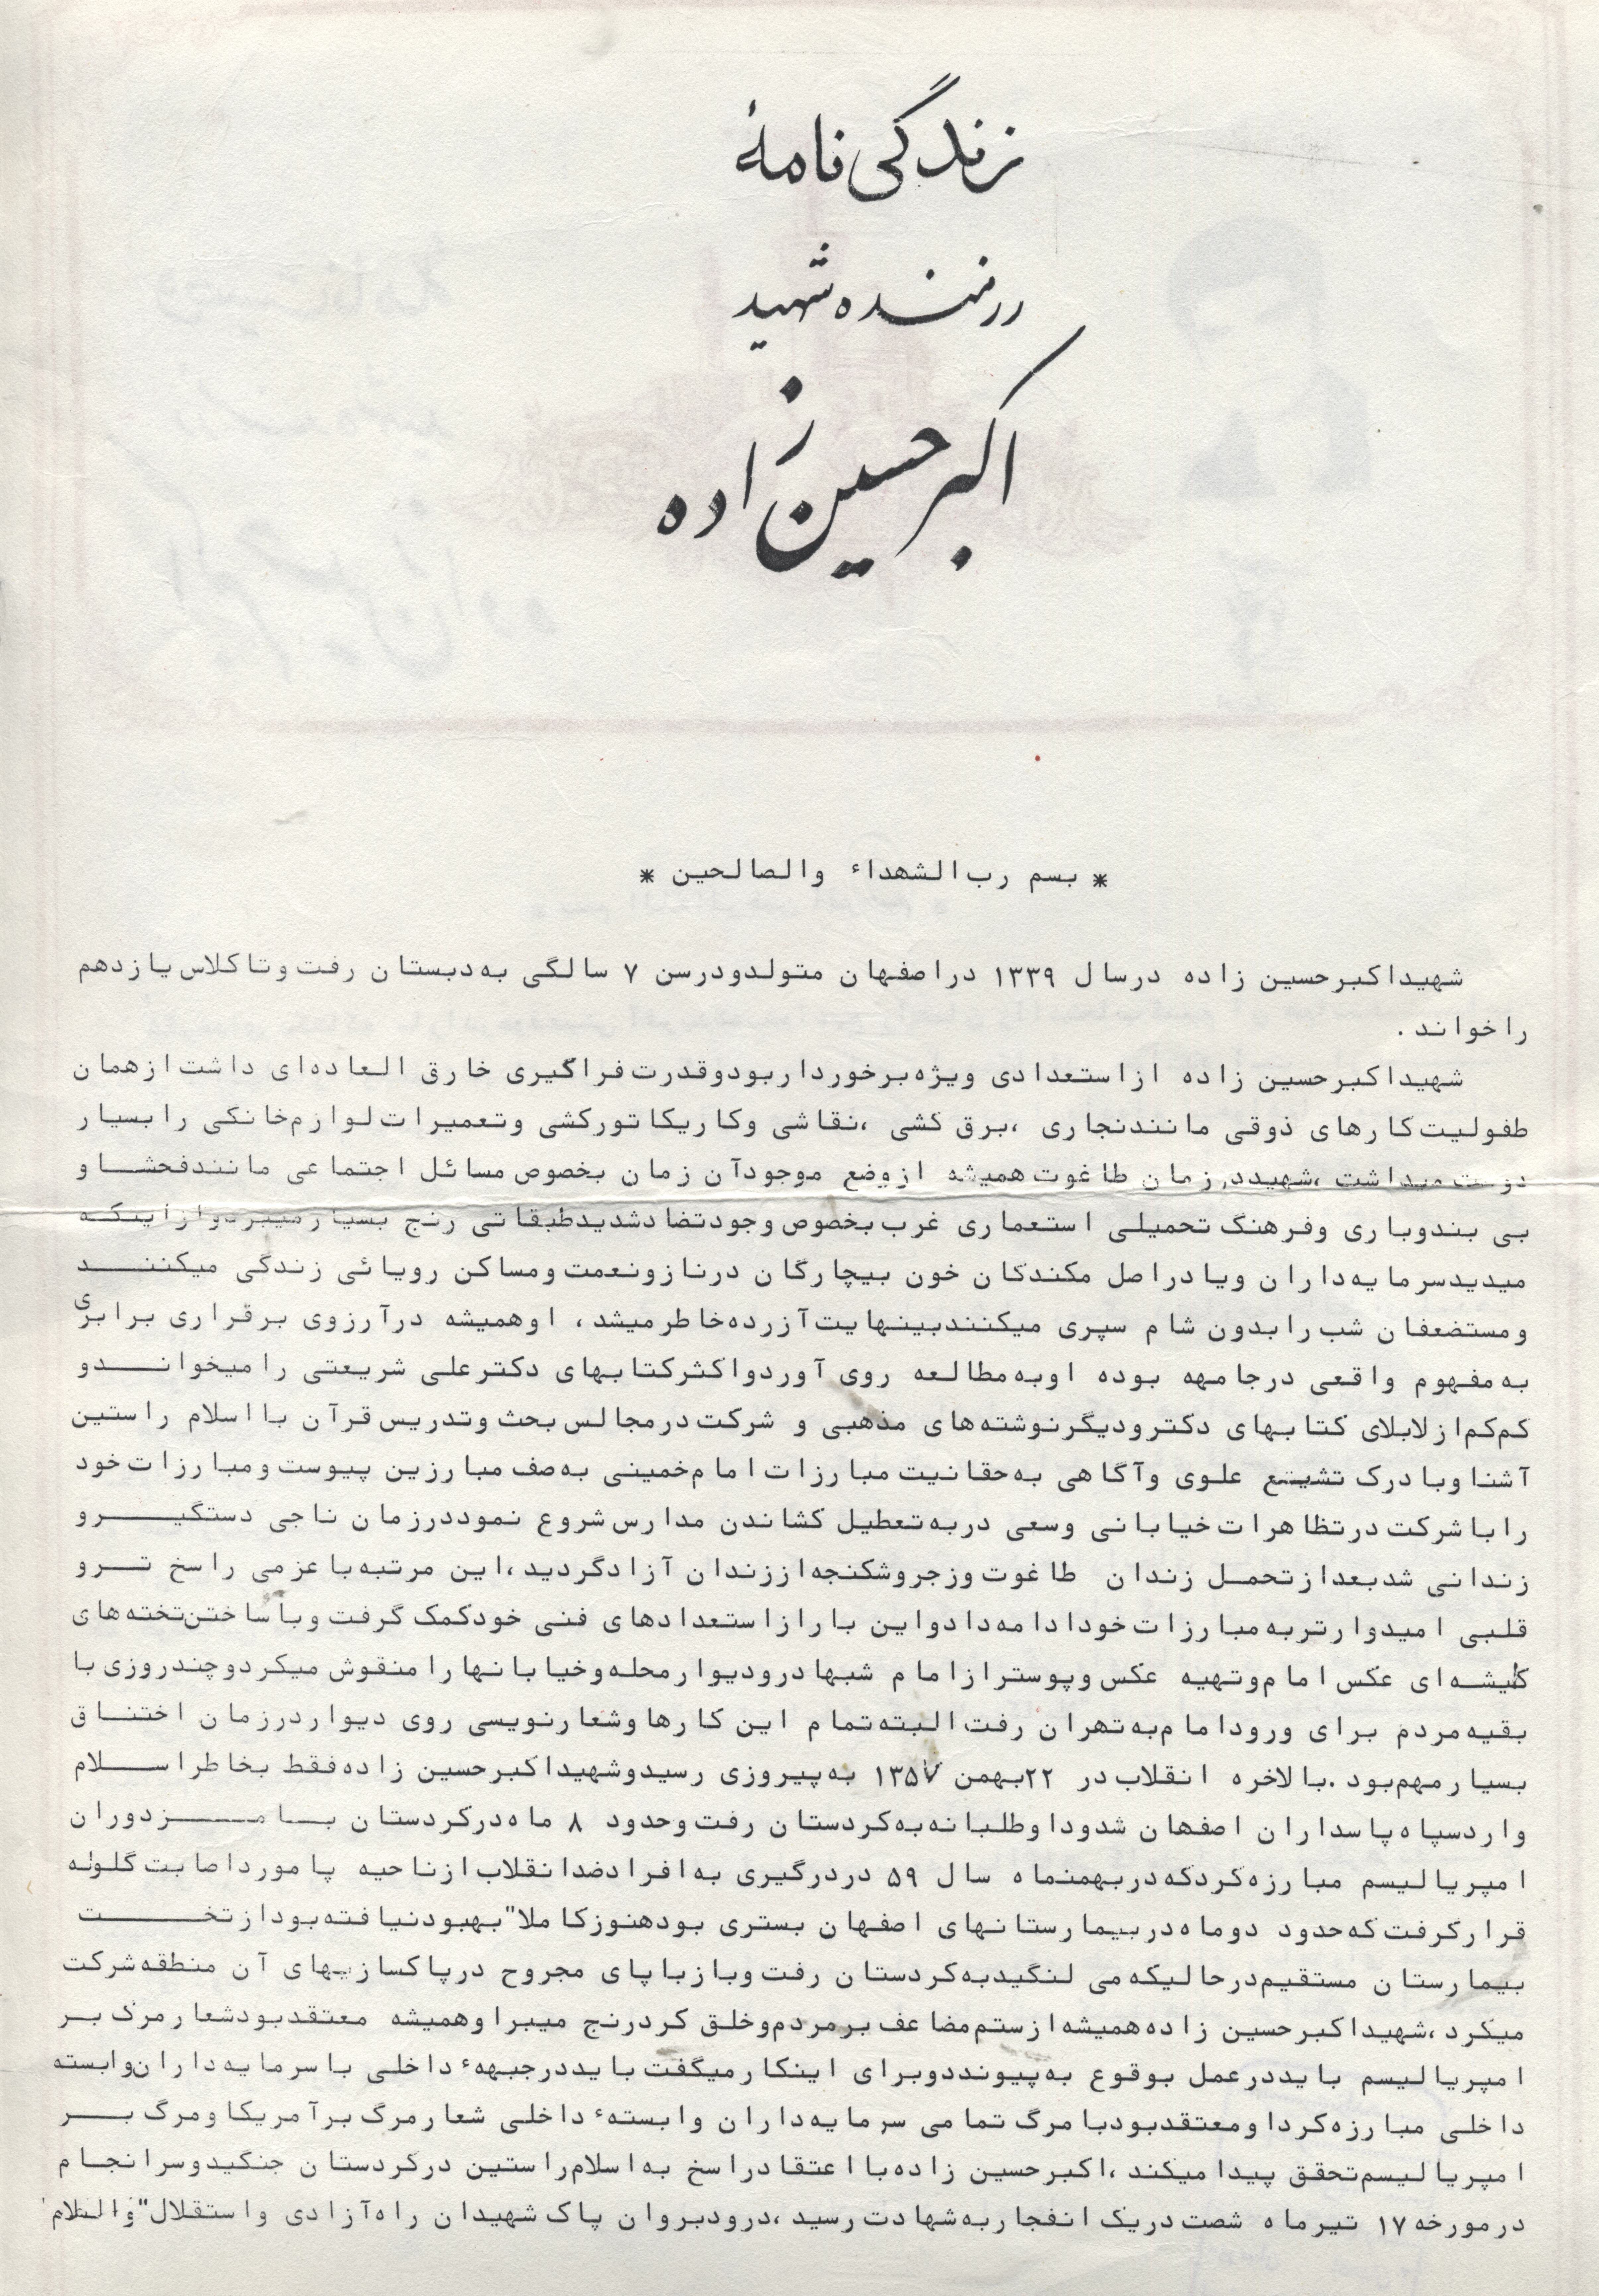 زندگی نامهٔ
رزمنده شهید
اکبر حسین زاده
* بسم رب الشهداء والصالحین *
شهید اکبر حسین زاده درسال ۱۳۳۹ دراصفهان متولد ودرسن ۷ سالگی به دبستان رفت وتا کلاس یازدهم
را خواند .
شهید اکبر حسین زاده ازاستعدادی ویژه برخوردار بود وقدرت فراگیری خارق العاده ای داشت ازهمان
طفولیت کارهای ذوقی مانند نجاری ،برق کشی ،نقاشی وکاریکاتور کشی وتعمیرات لوازم خانگی را بسیار
دوست میداشت ،شهید در زمان طاغوت همیشه ازوضع موجود آن زمان بخصوص مسائل اجتماعی مانند فحشا و
بی بندوباری وفرهنگ تحمیلی استعماری غرب بخصوص وجود تضاد شدید طبقاتی رنج بسیار میبرد واز اینکه
میدید سرمایه داران ویا دراصل مکندگان خون بیچارگان درناز ونعمت ومساکن رویائی زندگی میکنند
ومستضعفان شب را بدون شام سپری میکنند بینهایت آزرده خاطر میشد ، او همیشه درآرزوی برقراری برابری
به مفهوم واقعی درجامهه بوده اوبه مطالعه روی آورد واکثر کتابهای دکتر علی شریعتی را میخواند و
کم کم از لابلای کتابهای دکتر ودیگر نوشته های مذهبی و شرکت در مجالس بحث وتدریس قرآن با اسلام راستین
آشنا وبا درک تشیتع علوی وآگاهی به حقانیت مبارزات امام خمینی به صف مبارزین پیوست ومبارزات خود
را با شرکت درتظاهرات خیابانی وسعی دربه تعطیل کشاندن مدارس شروع نمود درزمان ناجی دستگیر و
زندانی شد بعد از تحمل زندان طاغوت وزجر وشکنجه از زندان آزاد گردید ،این مرتبه با عزمی راسخ تر و
قلبی امیدوارتر به مبارزات خود ادامه داد واین بار ازاستعدادهای فنی خود کمک گرفت وبا ساختن تخته های
کلیشه ای عکس امام وتهیه عکس وپوستر ازامام شبها درودیوار محله وخیابانها را منقوش میکرد وچند روزی با
بقیه مردم برای ورود امام به تهران رفت البته تمام این کارها وشعارنویسی روی دیوار درزمان اختناق
بسیار مهم بود .بالاخره انقلاب در ۲۲بهمن ۱۳۵۷ به پیروزی رسید وشهید اکبر حسین زاده فقط بخاطر اسلام
وارد سپاه پاسداران اصفهان شد وداوطلبانه به کردستان رفت وحدود ۸ ماه درکردستان با مزدوران
امپریالیسم مبارزه کرد که دربهمنماه سال ۵۹ دردرگیری به افراد ضد انقلاب ازناحیه پا مورد اصابت گلوله
قرار گرفت که حدود دوماه دربیمارستانهای اصفهان بستری بود هنوز کاملا" بهبود نیافته بود از تخت
بیمارستان مستقیم درحالیکه می لنگید به کردستان رفت وباز با پای مجروح درپاکسازیهای آن منطقه شرکت
میکرد ،شهید اکبر حسین زاده همیشه ازستم مضاعف بر مردم وخلق کرد رنج میبرا وهمیشه معتقد بود شعار مرگ بر
امپریالیسم باید درعمل بوقوع به پیوندد وبرای اینکار میگفت باید درجبههء داخلی با سرمایه داران وابسته
داخلی مبارزه کرد ا ومعتقد بود با مرگ تمامی سرمایه داران وابستهء داخلی شعار مرگ برآمریکا ومرگ بر
امپریالیسم تحقق پیدا میکند ،اکبر حسین زاده با اعتقاد راسخ به اسلام راستین درکردستان جنگید وسرانجام
درمورخه ۱۷ تیرماه شصت دریک انفجار به شهادت رسید ،درود بروان پاک شهیدان راه آزادی واستقلال" والسلام